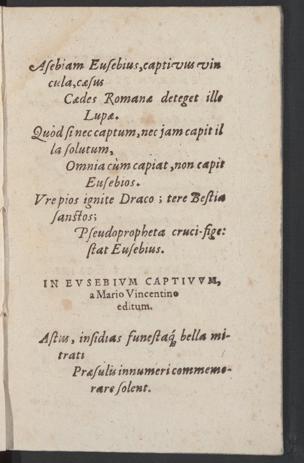 Asebiam Eusebius, captivus vin
cula, cæsus
Cædes Romanæ deteget ille
Lupæ.
Quòd si nec captum, nec jam capit il
la solutum,
Omnia cùm capiat, non capit
Eusebios.
Vre pios ignite Draco ; tere Bestia
sanctos;
Pseudopropheta cruci-fige:
stat Eusebius.
IN EVSEBIVM CAPTIVVM,
a Mario Vincentino
editum.
Astus, insidias funestaq́; bella mi-
trati
Præsulis innumeri commemo-
rare solent.